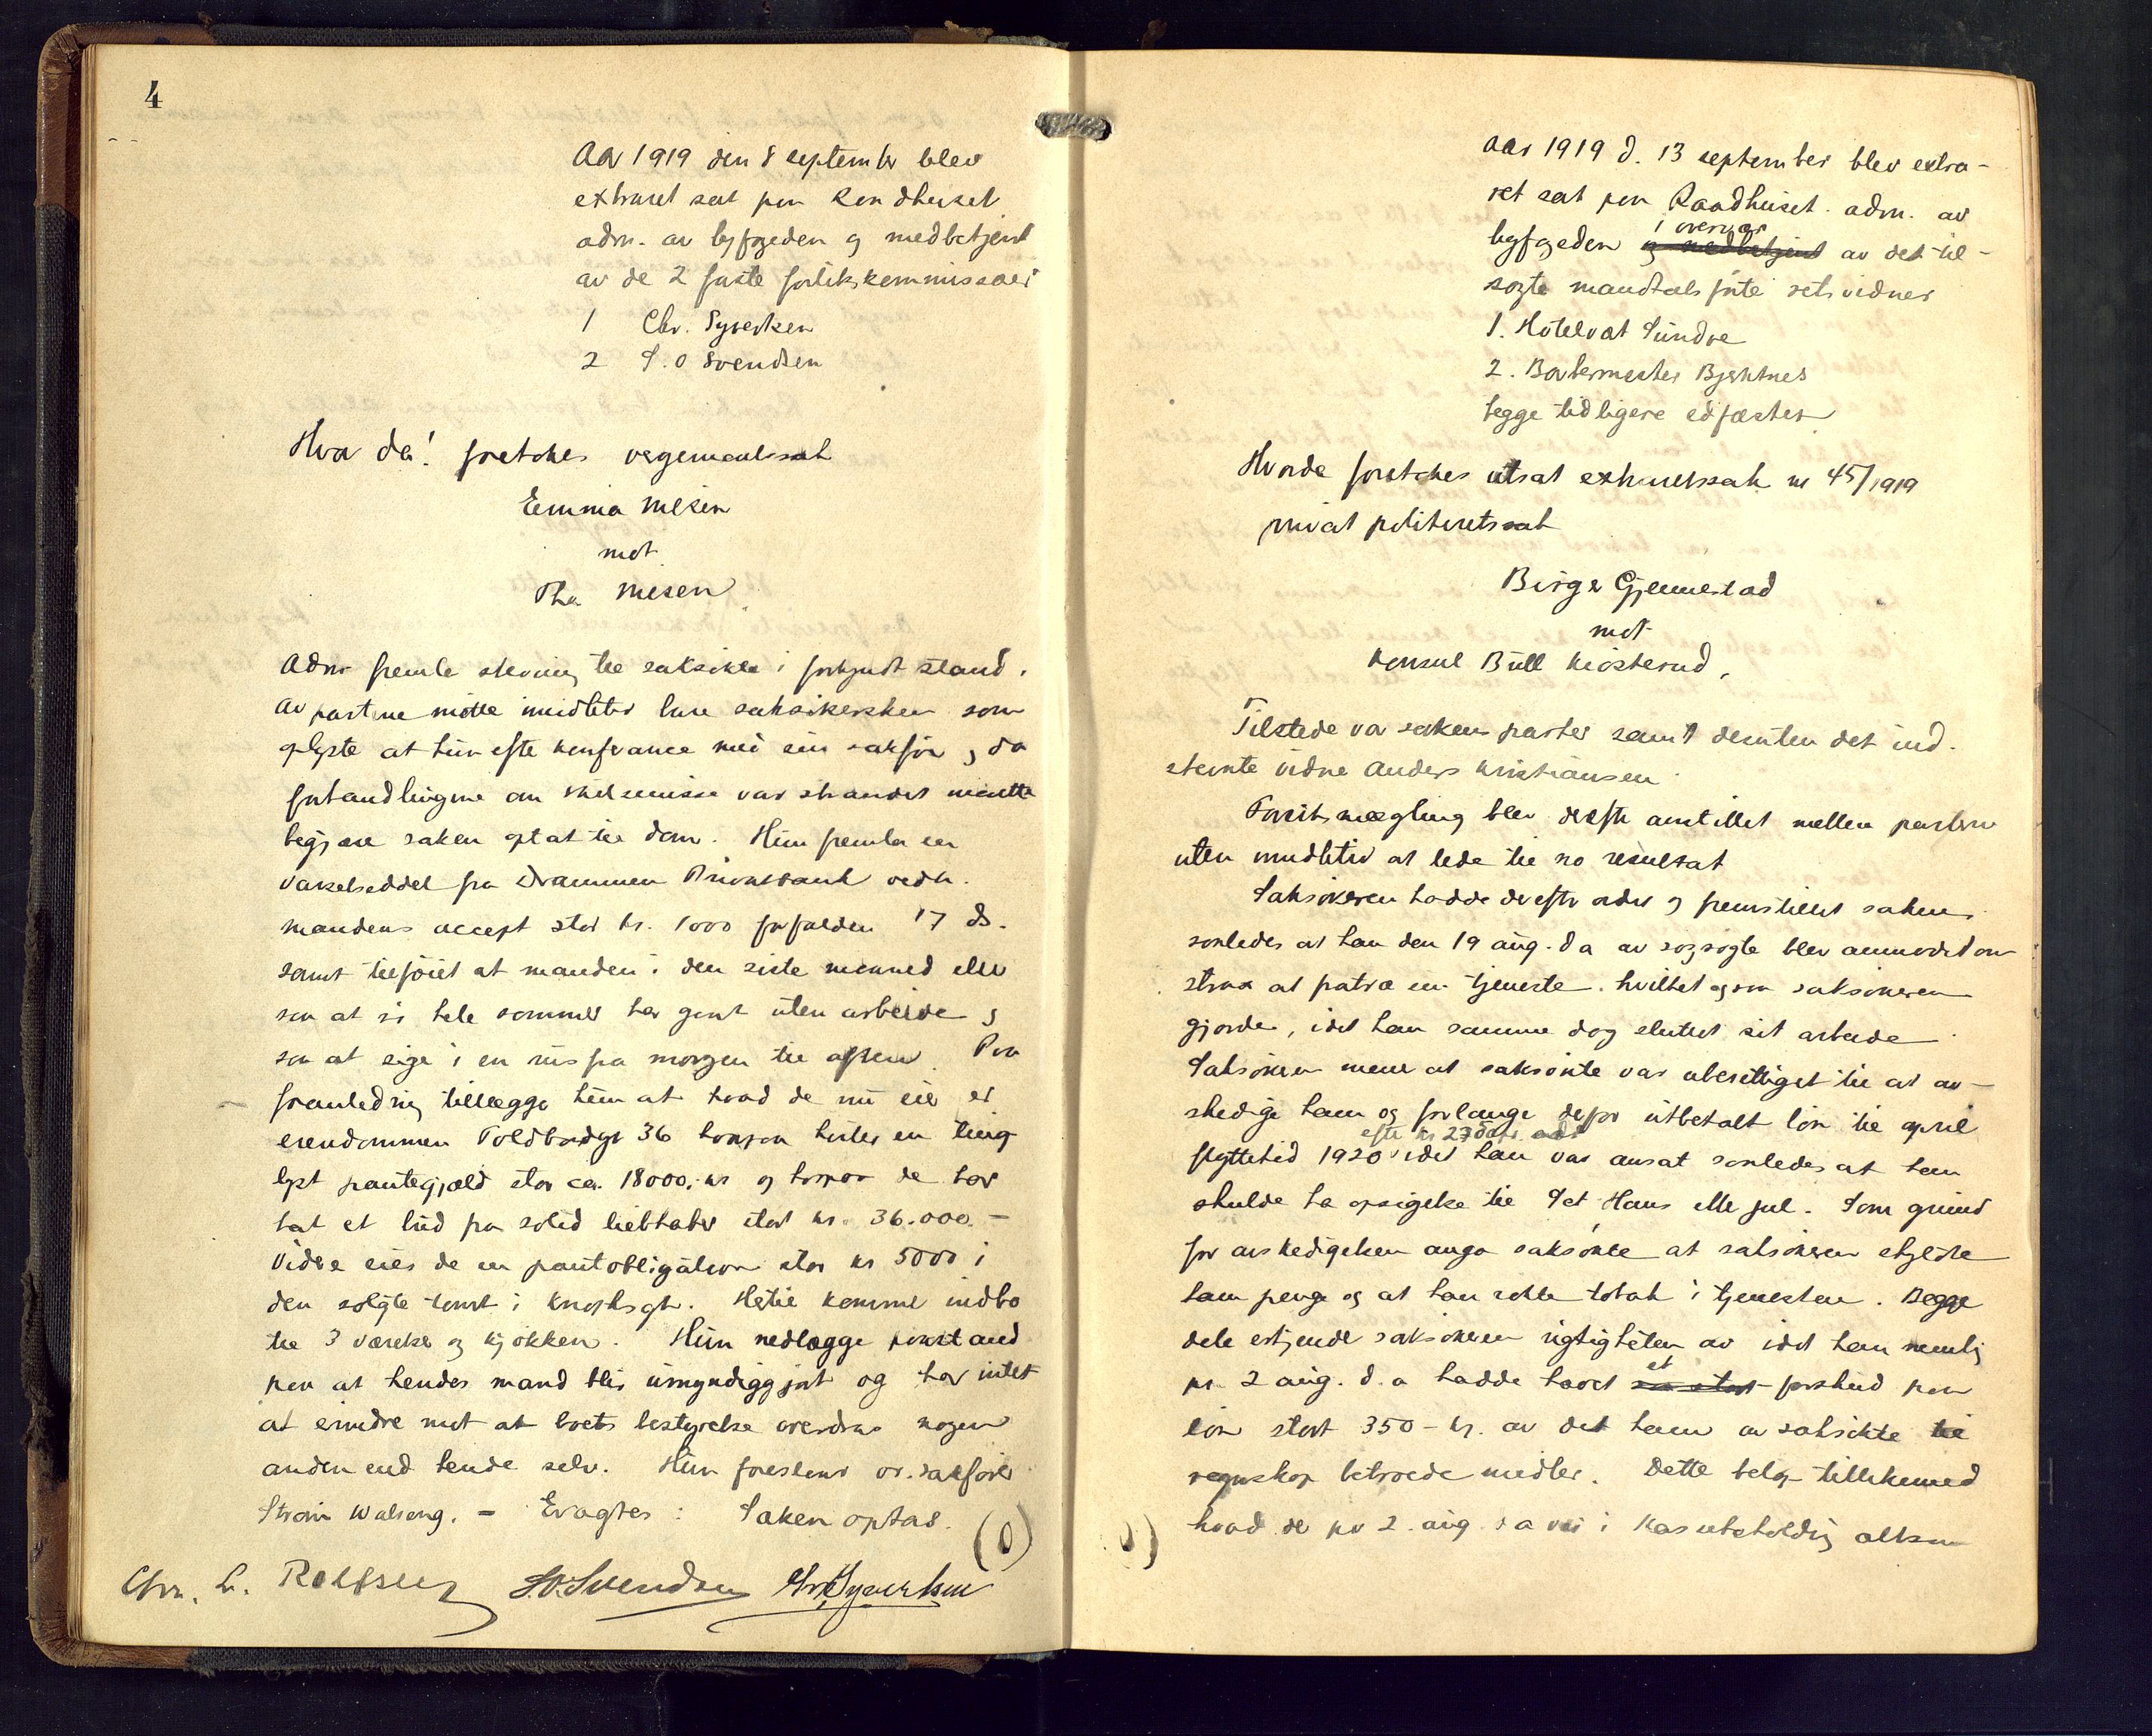 4
Aar 1919 den 8 september blev
extraret sat paa Raadhuset
adm. av byfogeden og medbetjent
av de 2 faste forlikskommissaer
1 Chr. Syvertsen
2 S. O Svendsen
Hvor da! foretokes vergemaalssak
Emma Mesen
mot
Tha Mesen
Adm fremla stevning til saksøkte i forkyndt stand.
Av partene møtte imidlertid bare saksøkersken som
oplyste at hun efter konferance med sin sakfører, da
forhandlingene om skilsmisse var strandet maatte
begjære saken optat til dom. Hun fremla en
varselseddel fra Drammen Privatbank vedk.
mandens accept stor kr. 1000 forfalden 17 ds.
samt tilføiet at manden i den siste maaned eller
saa at si hele sommer har gaat uten arbeide og
saa at sige i en rus fra morgen til aften. Paa
foranledning tillægger hun at hvad de nu eier er
eiendommen Toldbodgt 36 hvorpaa hviler en ting
lyst pantegjæld stor ca. 18000,- kr og hvorpaa de har
hat et bud fra solid liebhaber stort kr. 36.000.-
Videre eies de en pantobligation stor kr 5000 i
den solgte tomt i Knoffsgt. Hertil kommer indbo
til 3 værelser og kjøkken. Hun nedlægger paastand
paa at hendes mand blir umyndiggjort og har intet
at erindre mot at boets bestyrelse overdras nogen
anden end hende selv. Hun foreslaar or. sakfører
Strøm Walseng. - Eragtes: Saken optas.
(O)
Chr. L. Rolfsen S.O. Svendsen Chr Syvertsen
Aar 1919 d. 13 september blev extra-
ret sat paa Raadhuset. adm. av
i overvær
byfogeden og medbetjent av det til-
sagte mandtalsførte retsvidner
1. Hotelvert Sundre
2. Bakermester Bjerknes
begge tidligere edfæstet
Hvorda foretokes utsat extraretssak nr 45/1919
privat politiretssak
Birger Gjennestad
mot
Konsul Bull Kiøsterud,
Tilstede var sakens parter samt desuten det ind-
stevnte vidne Anders Kristiansen
Forliksmægling blev derefter anstillet mellem parterne
uten imidlertid at lede til no resultat
Saksøkeren hadde derefter ordet og fremstillet saken
saaledes at han den 19 aug. d a av sagsøgte blev anmodet om
strax at fratræ sin tjeneste. hvilket ogsaa saksøkeren
gjorde, idet han samme dag sluttet sit arbeide
Saksøkeren mener at saksøkte var uberettiget til at av-
skedige ham og forlanger derfor utbetalt løn til april
efter kr 275 pr. md
flyttetid 1920 idet han var ansat saaledes at han
skulde ha opsigelse til Sct Hans eller jul. Som grund
for avskedigelsen anga saksøkte at saksøkeren skyldte
ham penge og at han røkte tobak i tjenesten. Begge
dele erkjendte saksøkeren rigtigheten av idet han nemlig
et
pr. 2 aug. d. a hadde havt en stort forskud paa
løn stort 350 - kr. av det ham av saksøkte til
regnskap betroede midler. Dette beløp tillikemed
hvad der pr 2. aug. d a var i kassebeholdning altsaa